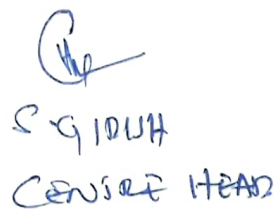 S. GIRISH
CENTRE HEAD